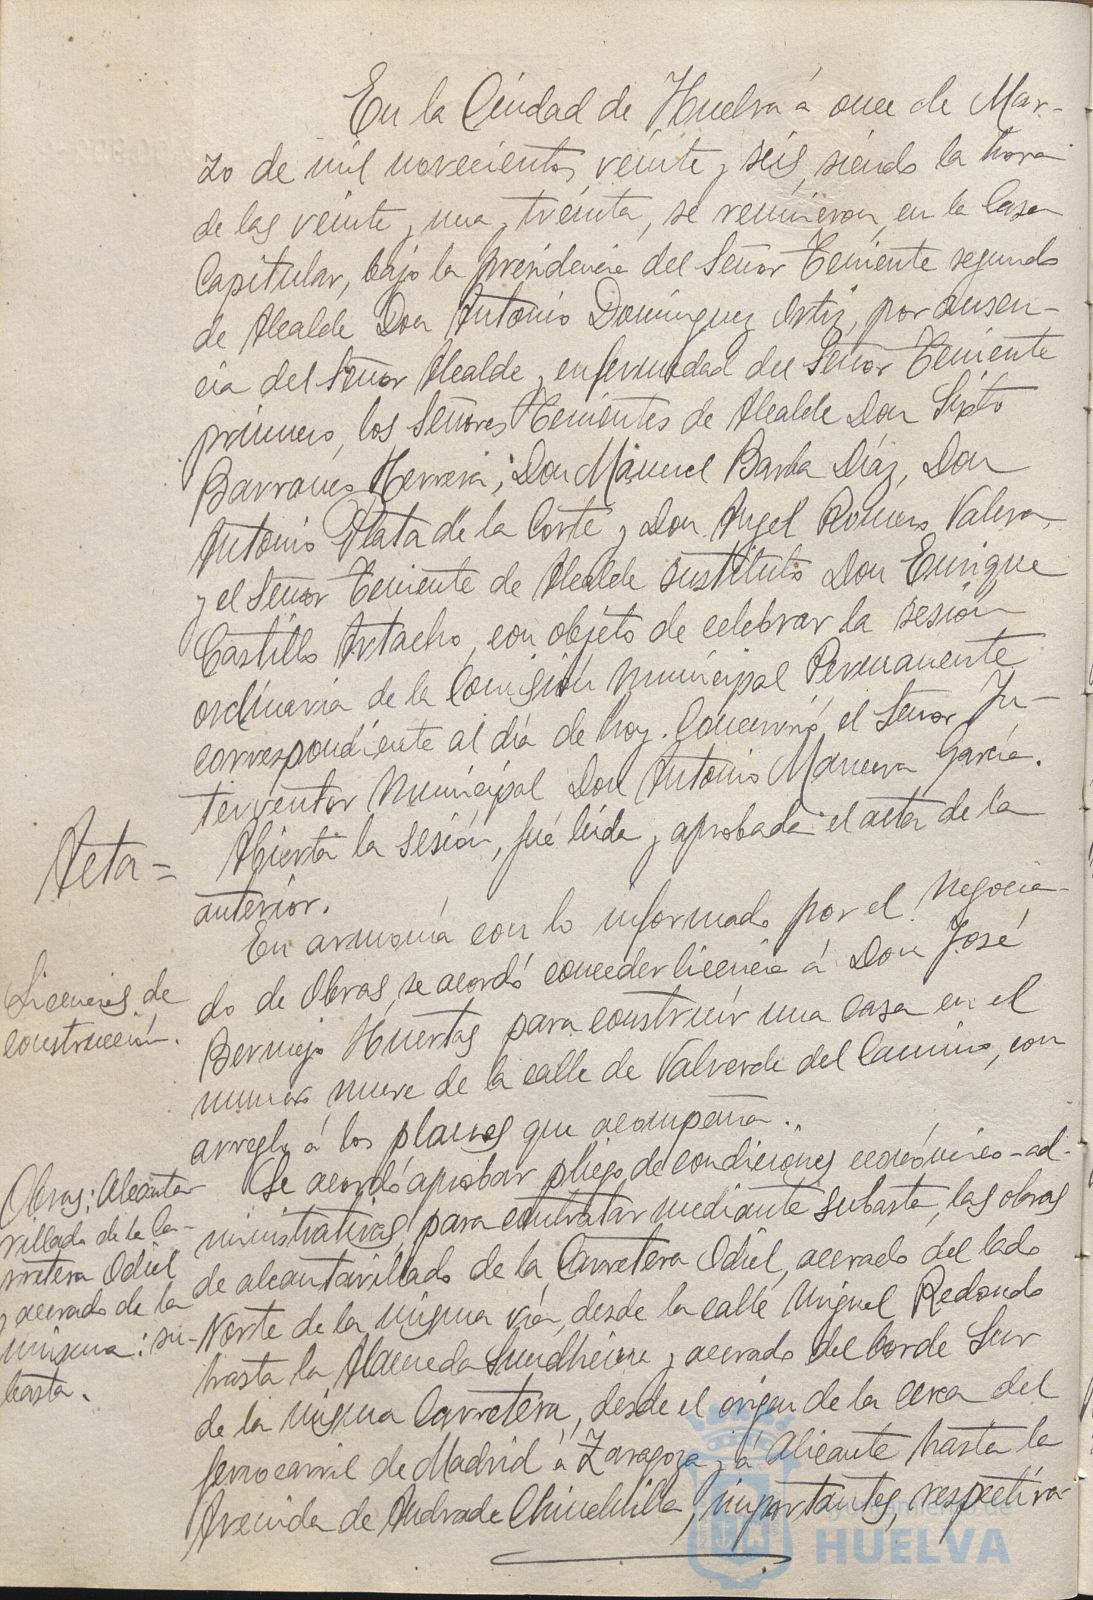 En la Ciudad de Huelva á once de Mar-
zo de mil novecientos veinte y seis, siendo la hora
de las veinte y una y treinta, se reunieron, en la Casa
Capitular, bajo la presidencia del Señor Teniente segundo
de Alcalde Don Antonio Domínguez Ortiz, por ausen-
cia del Señor Alcalde y enfermedad del Señor Teniente
primero, los Señores Tenientes de Alcalde Don Sixto
Barranco Herrera, Don Manuel Barba Díaz, Don
Antonio Plata de la Corte y Don Angel Romero Valera,
y el Señor Teniente de Alcalde sustituto Don Enrique
Castillo Artacho, con objeto de celebrar la sesión
ordinaria de la Comisión Municipal Permanente
correspondiente al día de hoy. Concurrió el Señor In-
terventor Municipal Don Antonio Manuera García.
Acta=
Abierta la sesión, fué leida y aprobada el acta de la
anterior.
Licencias de
construcción.
En armonía con lo informado por el Negocia-
do de Obras, se acordó conceder licencia á Don José
Bermejo Huertas para construir una casa en el
número nueve de la calle de Valverde del Camino, con
arreglo á los planos que acompaña.
Obras: Alcanta-
rillado de la Ca-
rretera Odiel
y acerado de la
misma: su-
basta.
Se acordó aprobar pliego de condiciones económico-ad-
ministrativas para contratar mediante subasta, las obras
de alcantarillado de la Carretera Odiel, acerado del lado
Norte de la misma vía, desde la calle Miguel Redondo
hasta la Alameda Sundheim y acerado del borde Sur
de la misma Carretera, desde el origen de la cerca del
ferrocarril de Madrid á Zaragoza y á Alicante hasta la
Avenida de Andrade Chinchilla, importantes, respectiva-
ayuntamiento de
HUELVA